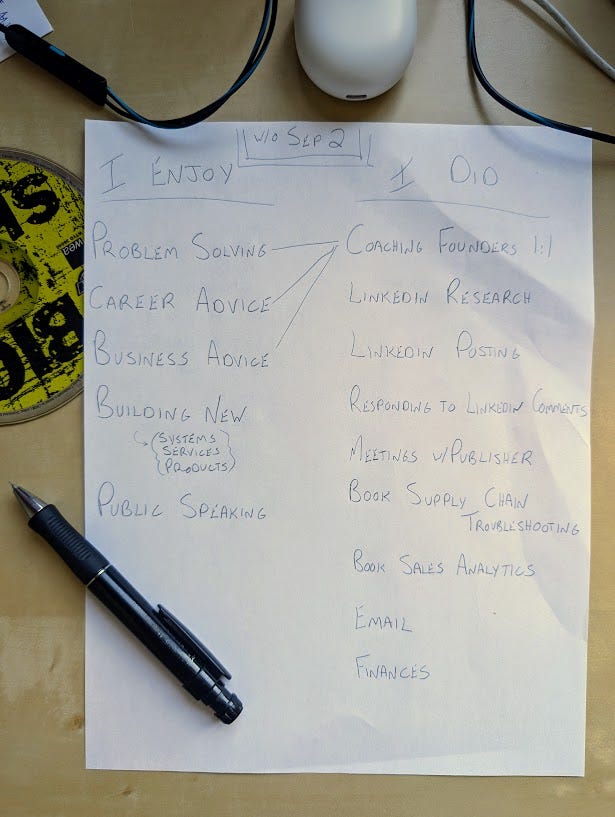 W/O SEP 2
I ENJOY
I DID
PROBLEM SOLVING
CAREER ADVICE
BUSINESS ADVICE
BUILDING NEW
SYSTEMS
SERVICES
PRODUCTS
PUBLIC SPEAKING
COACHING FOUNDERS 1:1
LINKEDIN RESEARCH
LINKEDIN POSTING
RESPONDING TO LINKEDIN COMMENTS
MEETINGS W/PUBLISHER
BOOK SUPPLY CHAIN
TROUBLESHOOTING
BOOK SALES ANALYTICS
EMAIL
FINANCES
wea